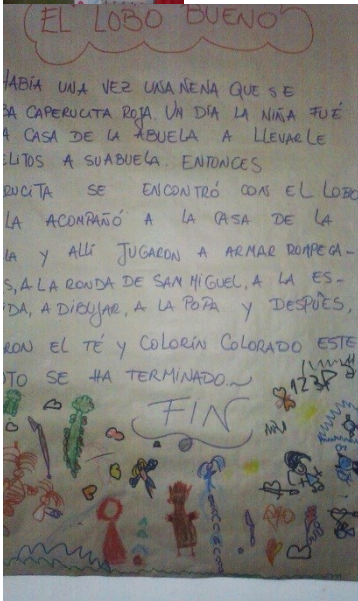 EL LOBO BUENO
HABÍA UNA VEZ UNA NENA QUE SE
BA CAPERUCITA ROJA. UN DÍA LA NIÑA FUÉ
A CASA DE LA ABUELA A LLEVARLE
ELITOS A SU ABUELA. ENTONCES
RUCITA SE ENCONTRÓ CON EL LOBO
LA ACOMPAÑÓ A LA CASA DE LA
LA Y ALLÍ JUGARON A ARMAR ROMPECA-
S, A LA RONDA DE SAN MIGUEL, A LA ES-
DA, A DIBUJAR, A LA POPA Y DESPUÉS,
RON EL TÉ Y COLORÍN COLORADO ESTE
TO SE HA TERMINADO.
FIN
123